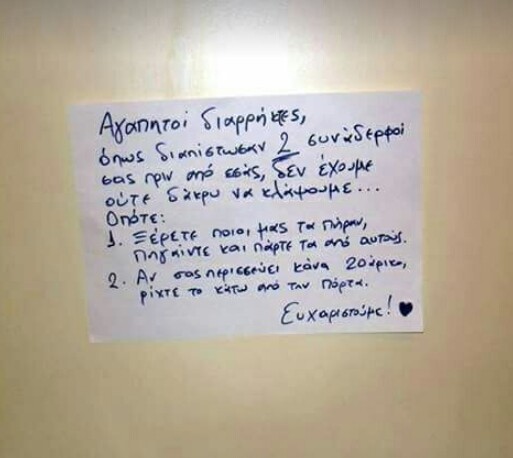 Αγαπητοί διαρρήκτες,
όπως διαπίστωσαν 2 συνάδερφοί
σας πριν από εσάς, δεν έχουμε
ούτε δάκρυ να κλάψουμε...
Οπότε:
1. Ξέρετε ποιοι μας τα πήραν,
πηγαίντε και πάρτε τα από αυτούς.
2. Αν σας περισσεύει κάνα 20άρικο,
ρίχτε το κάτω από την πόρτα.
Ευχαριστούμε! ♥